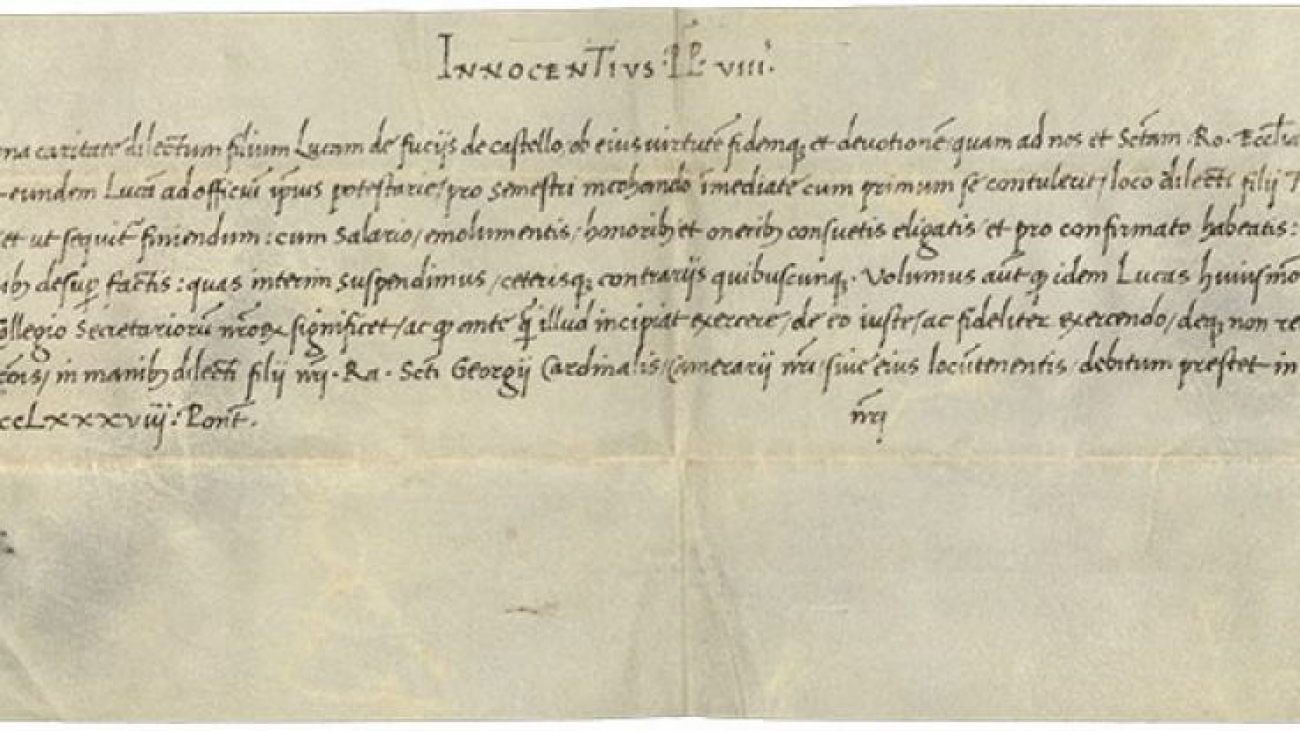 INNOCENTIVS · PP · VIII ·
na caritate dilectum filium Lucam de fucijs de castello, ob eius uirtutē fidemq; et deuotionē quam ad nos et Sctam · Ro · Eccliā
eundem Lucā ad officiū ip̄ius potestarie / pro semestri inchoando īmediate cum primum se contulerit / loco dilecti filij
et ut sequit̄ finiendum : cum Salario / emolumentis / honorib3 et onerib3 consuetis eligatis / et pro confirmato habeatis :
ib3 desup̄ factis : quas interim suspendimus / ceterisq; contrarijs quibuscunq; · Volumus aūt q̄ idem Lucas huiusmo
ollegio Secretariorū nr̄oꝝ significet / ac q̄ ante q̄ illud incipiat exercere / de eo iuste / ac fideliter exercendo / deq; non re
in manib3 dilecti filij nr̄i · Ra · Scti Georgij Cardinalis / Camerarij nr̄i / siue eius locūtenentis / debitum prestet in
ccLxxxviiij : Pont̄ · nr̄i